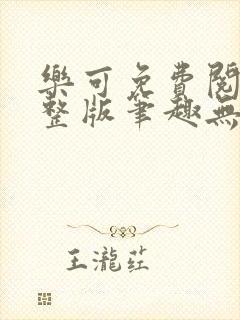 樂可免費閱
整版筆趣無
王瀧莊